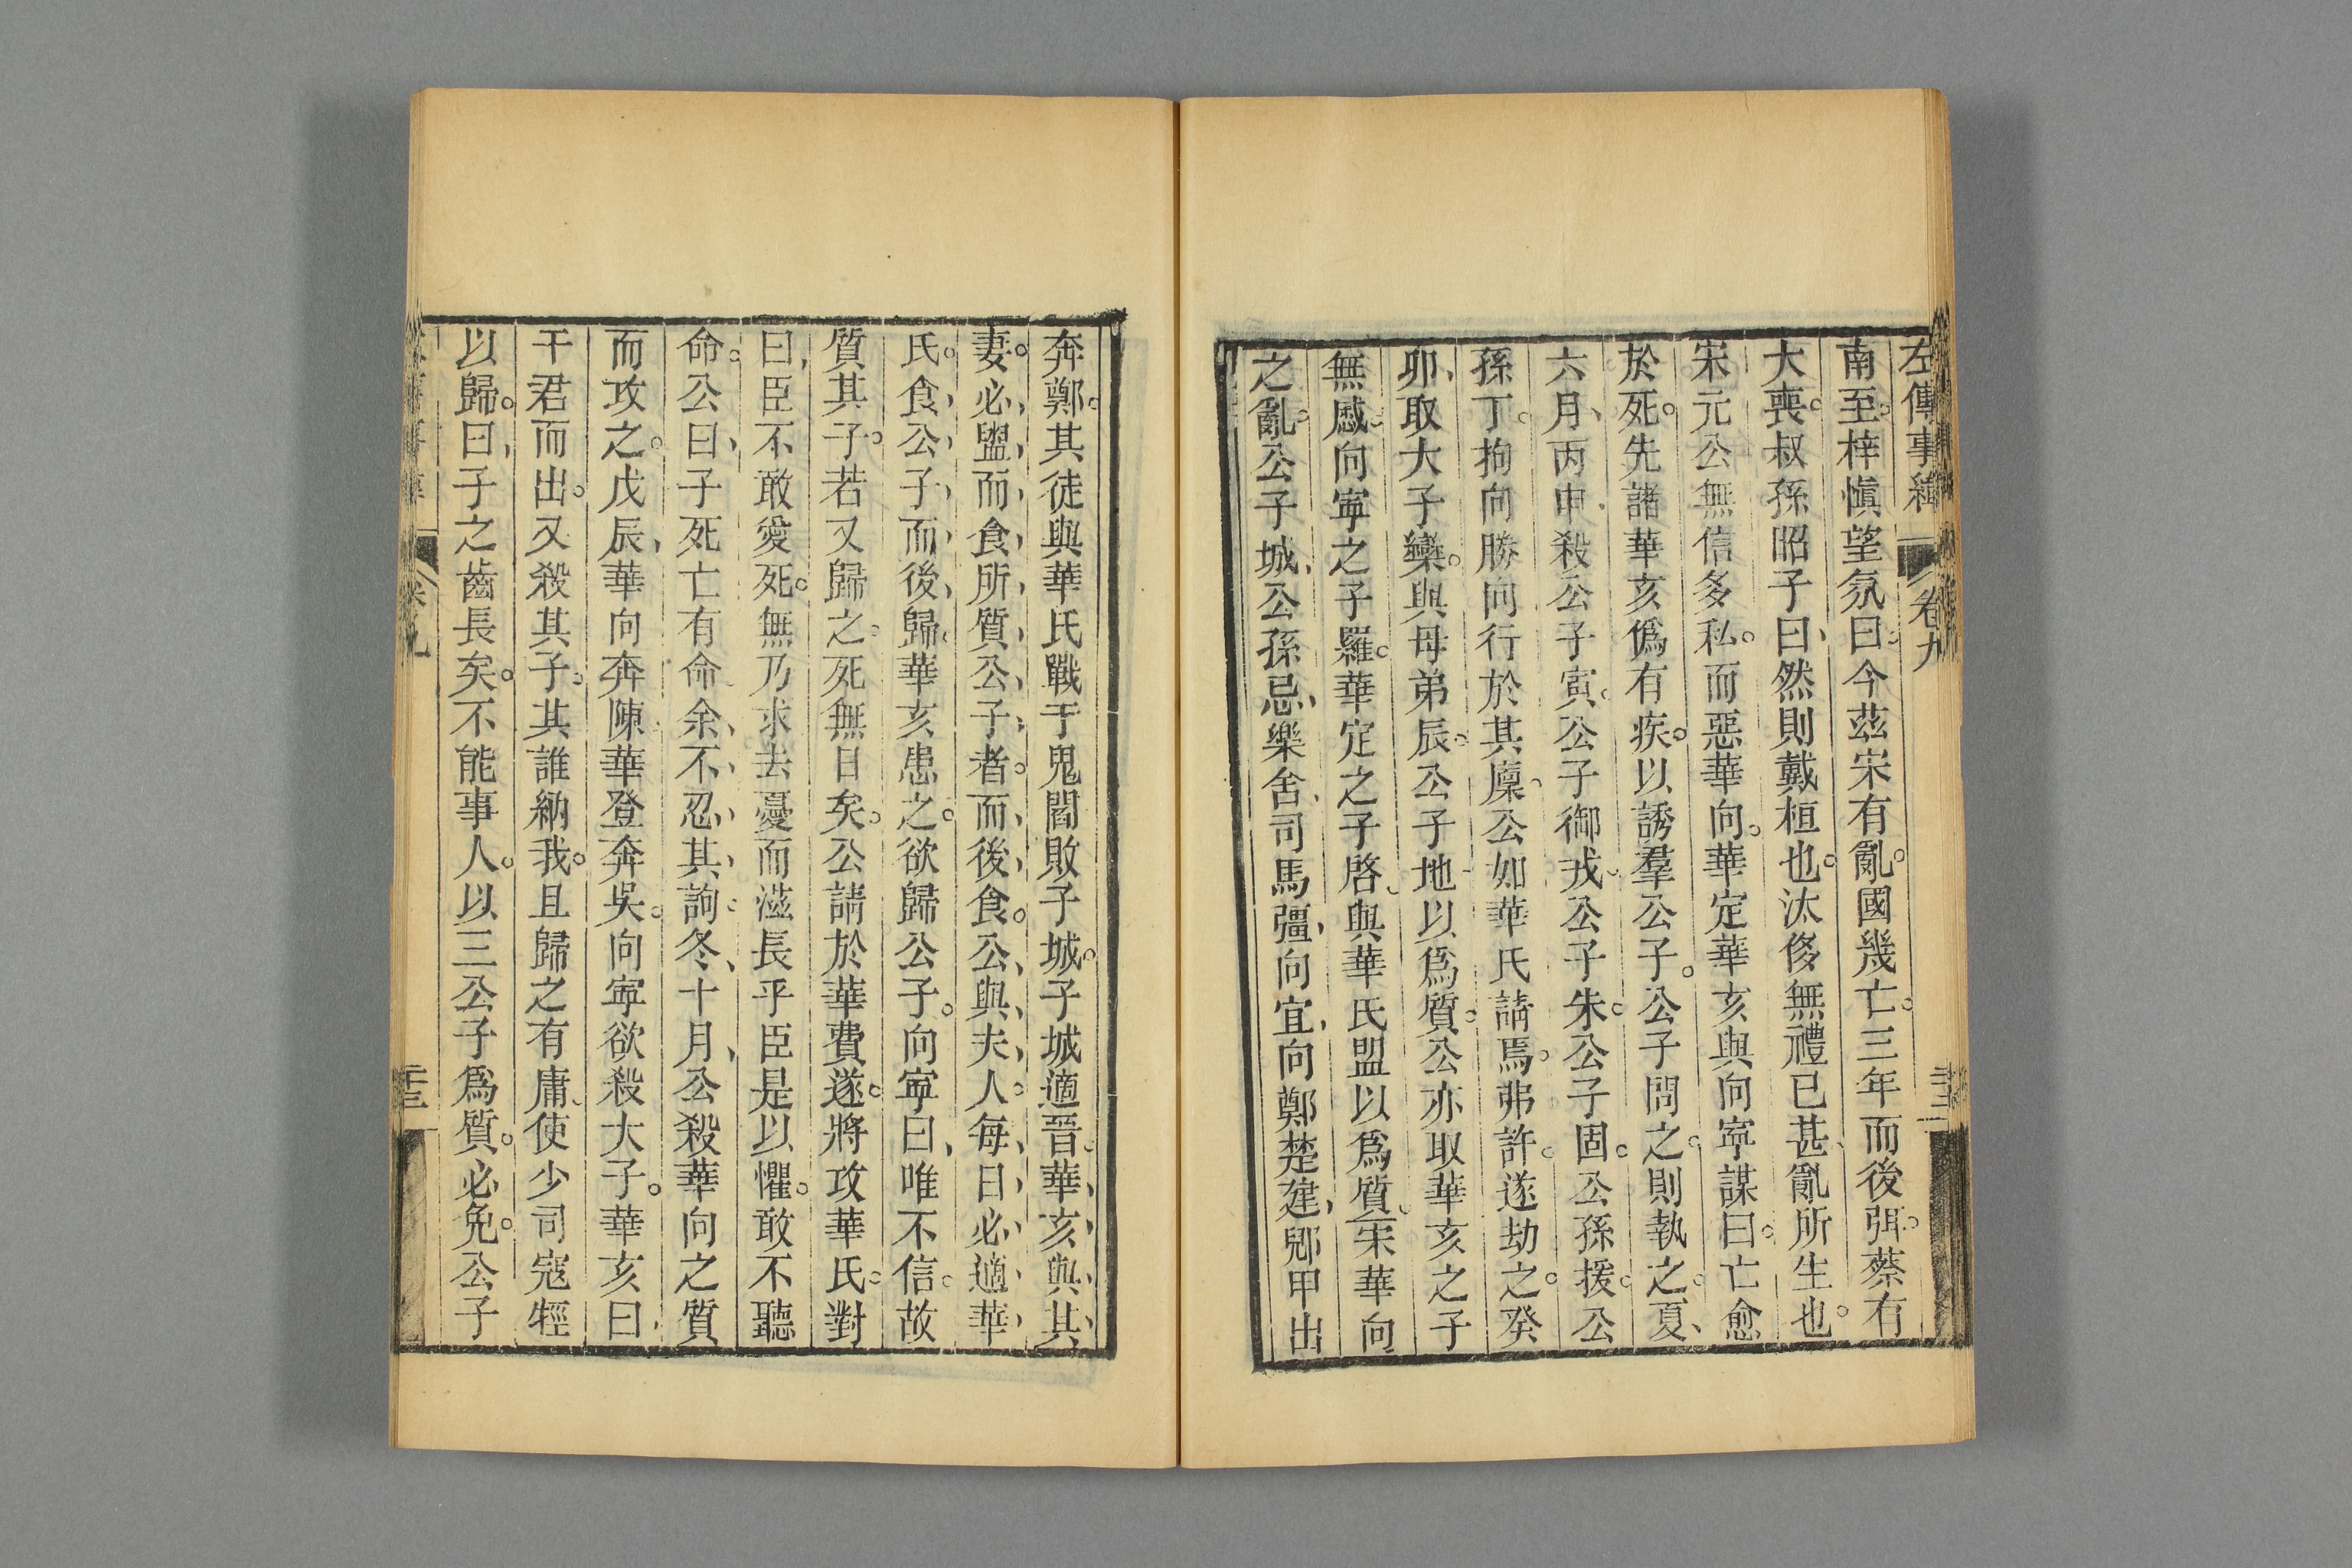 左傳事緯 卷九
南至梓愼望氛曰今茲宋有亂國幾亡三年而後弭蔡有
大喪叔孫昭子曰然則戴桓也汰侈無禮已甚亂所生也
宋元公無信多私而惡華向華定華亥與向寧謀曰亡愈
於死先諸華亥僞有疾以誘羣公子公子問之則執之夏
六月丙申殺公子寅公子御戎公子朱公子固公孫援公
孫丁拘向勝向行於其廩公如華氏請焉弗許遂劫之癸
卯取大子欒與母弟辰公子地以爲質公亦取華亥之子
無慼向寧之子羅華定之子啓與華氏盟以爲質宋華向
之亂公子城公孫忌樂舍司馬彊向宜向鄭楚建郳甲出
奔鄭其徒與華氏戰于鬼閻敗子城子城適晉華亥與其
妻必盥而食所質公子者而後食公與夫人每日必適華
氏食公子而後歸華亥患之欲歸公子向寧曰唯不信故
質其子若又歸之死無日矣公請於華費遂將攻華氏對
曰臣不敢愛死無乃求去憂而滋長乎臣是以懼敢不聽
命公曰子死亡有命余不忍其訽冬十月公殺華向之質
而攻之戊辰華向奔陳華登奔吳向寧欲殺大子華亥曰
干君而出又殺其子其誰納我且歸之有庸使少司寇牼
以歸曰子之齒長矣不能事人以三公子爲質必免公子